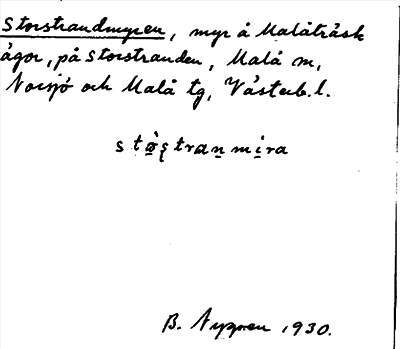 Storstrandmyren, myr å Malåträsk
ägor, på Storstranden, Malå m,
Norsjö och Malå tg, Västerb. l.
stò̱ʂtṟaṉmi̱ra
B. Nygren 1930.